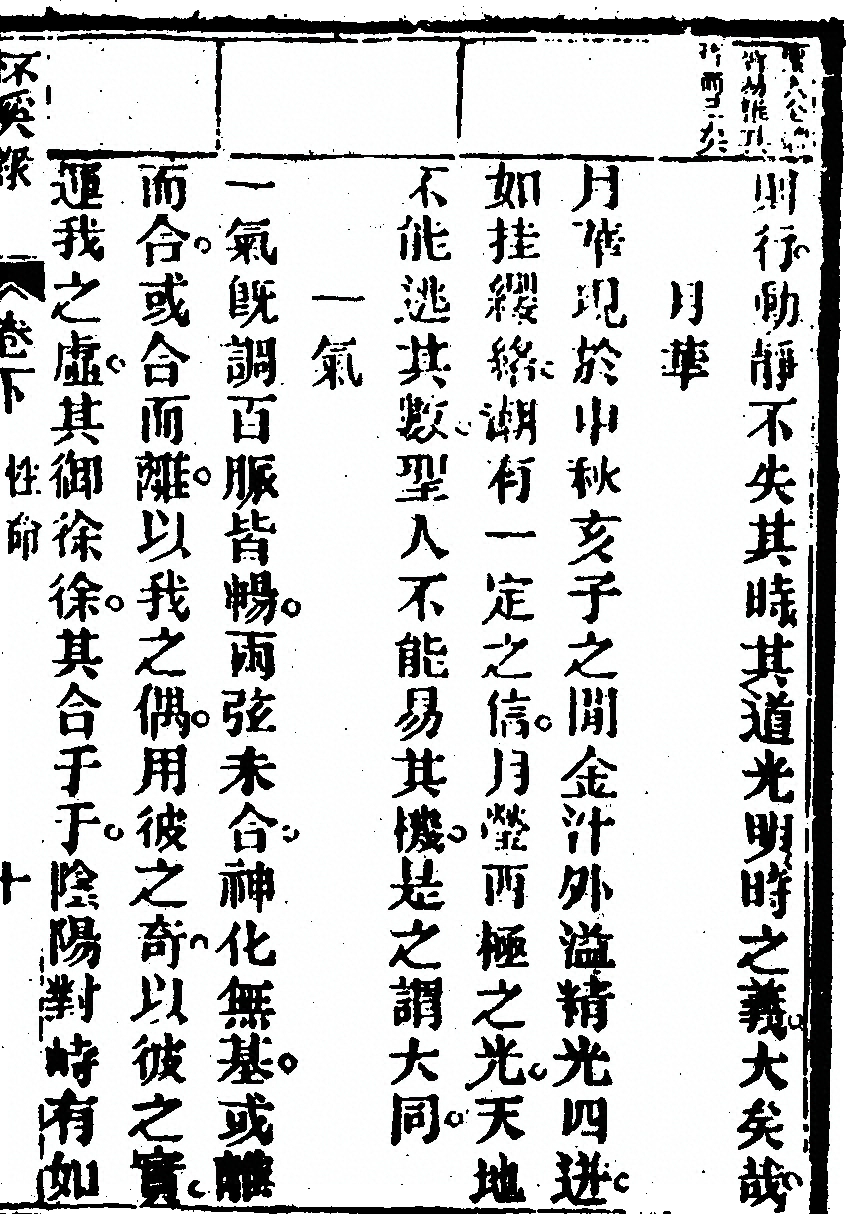 則行動靜不失其時其道光明時之義大矣哉
月華
月華現於中秋亥子之間金汁外溢精光四迸
如挂纓絡潮有一定之信月瑩西極之光天地
不能逃其數聖人不能易其機是之謂大同
一氣
一氣既調百脈皆暢兩弦未合神化無基或離
而合或合而離以我之偶用彼之奇以彼之實
運我之虛其御徐徐其合于于陰陽對峙有如
卷下
性命
十